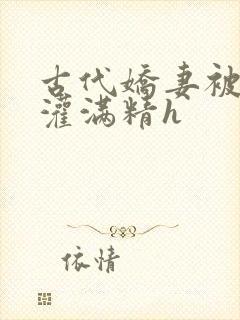 古代嬌妻被
灌满精h
依情